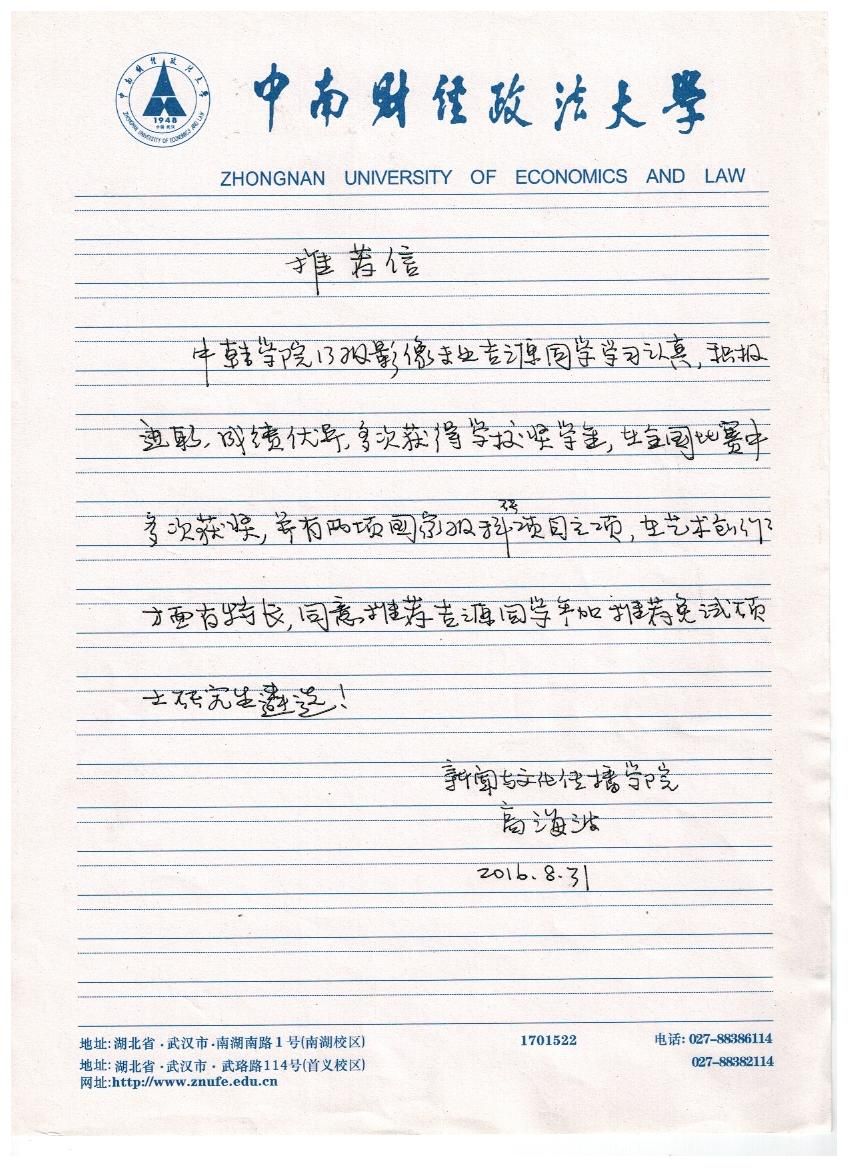 中南财经政法大学
1948
中国 武汉
ZHONGNAN UNIVERSITY OF ECONOMICS AND LAW
中南财经政法大学
ZHONGNAN UNIVERSITY OF ECONOMICS AND LAW
推荐信
中韩学院13级影像专业吉源同学学习认真,积极
进取、成绩优异,多次获得学校奖学金,在全国比赛中
多次获奖,并有两项国家级科研项目立项,在艺术创作
方面有特长,同意推荐吉源同学参加推荐免试硕
士研究生遴选!
新闻与文化传播学院
高海波
2016.8.31
地址:湖北省·武汉市·南湖南路1号(南湖校区)
1701522
电话:027-88386114
地址:湖北省·武汉市·武珞路114号(首义校区)
027-88382114
网址:http://www.znufe.edu.cn